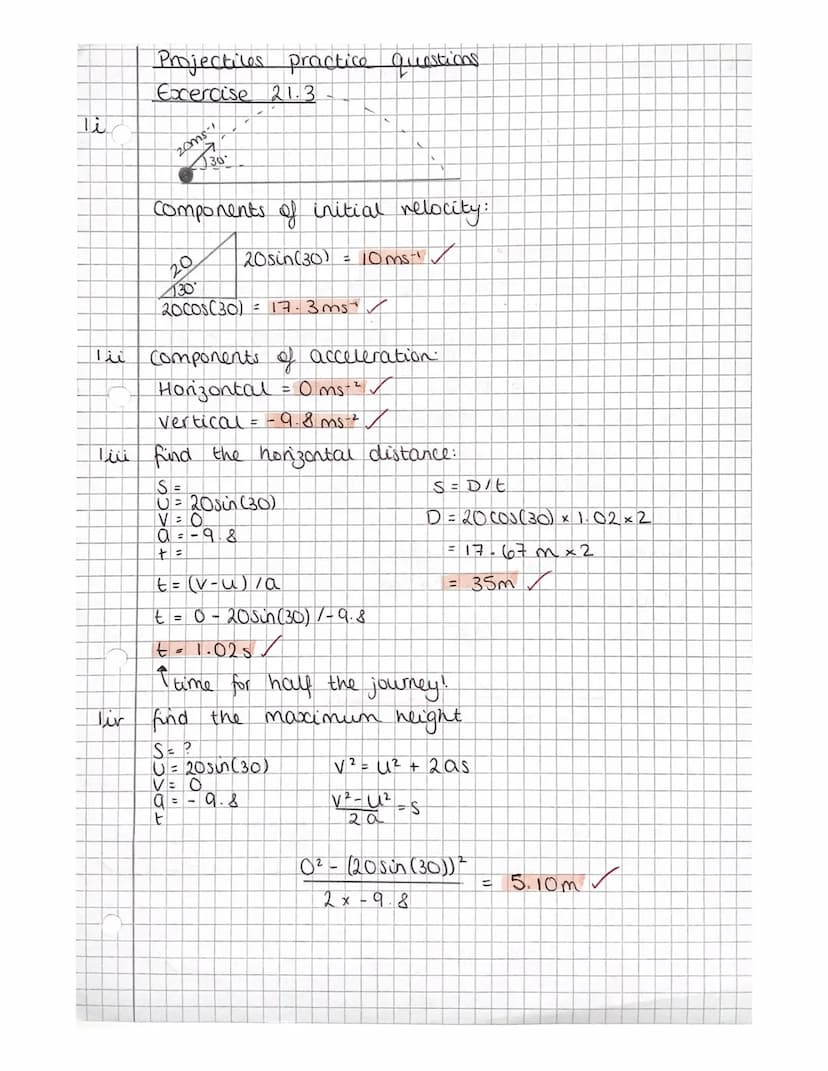 Projectiles practice questions
Excercise 21.3
1i
20ms⁻¹
30°
components of initial velocity:
20
20sin(30) = 10ms⁻¹ ✓
30°
20cos(30) = 17.3ms⁻¹ ✓
1ii components of acceleration:
Horizontal = 0ms⁻² ✓
vertical = -9.8ms⁻² ✓
1iii find the horizontal distance:
S =
U = 20sin(30)
V = 0
a = -9.8
t =
t = (v-u) / a
t = 0 - 20sin(30) / -9.8
t = 1.02s ✓
↑ time for half the journey!
S = D/t
D = 20cos(30) × 1.02 × 2
= 17.67m × 2
= 35m ✓
1iv find the maximum height
S = ?
U = 20sin(30)
V = 0
a = -9.8
t
V² = U² + 2as
V² - U² / 2a = S
0² - (20sin(30))² / 2 × -9.8 = 5.10m ✓